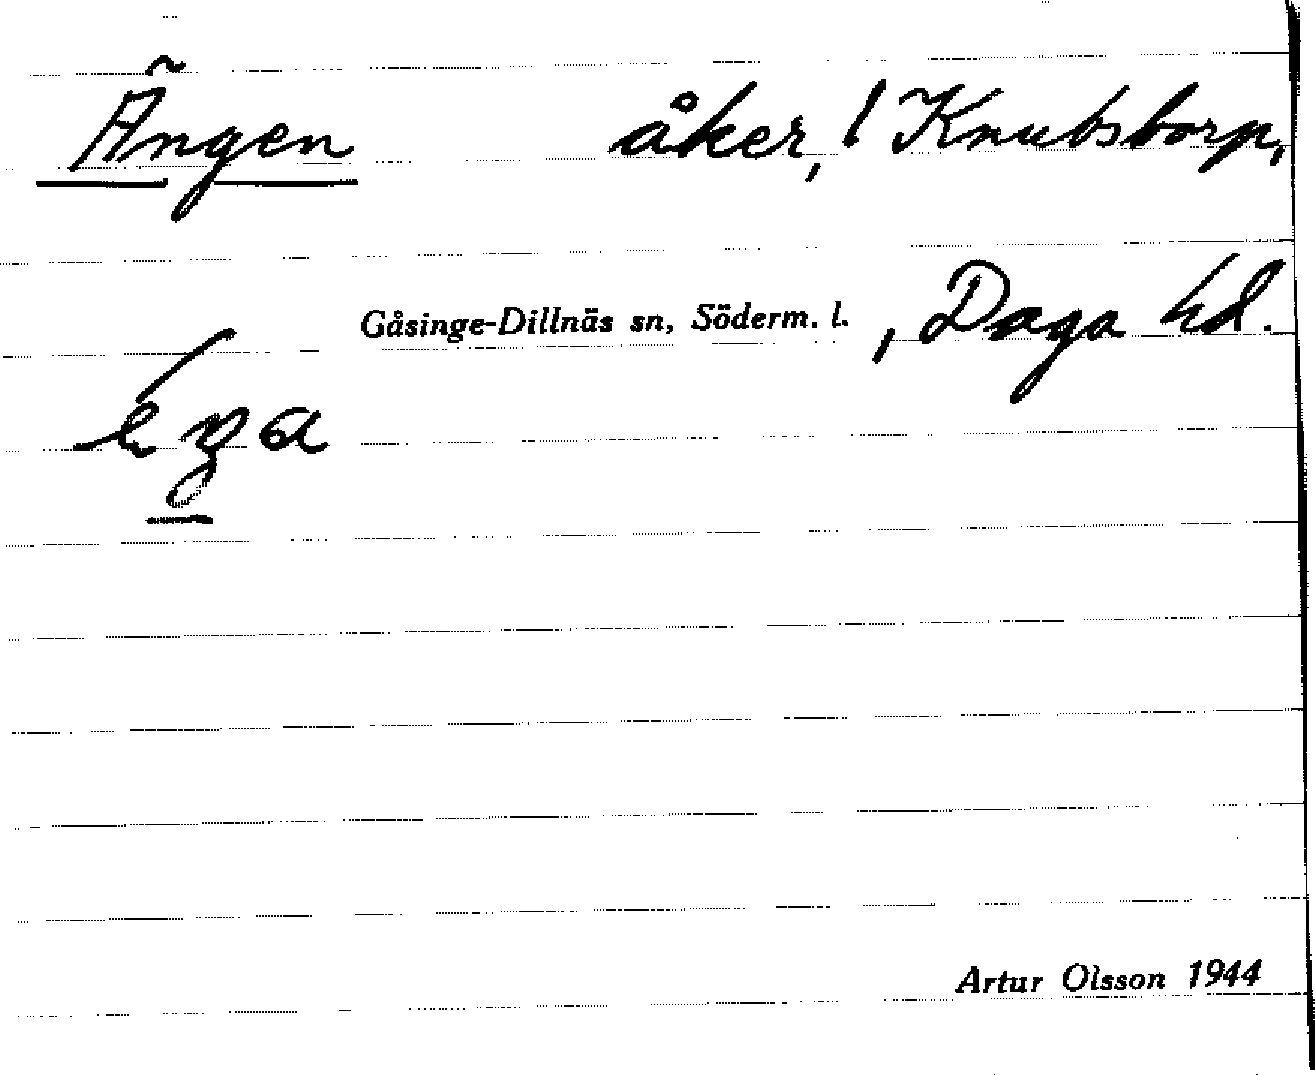 Ängen åker, / Knubstorp,
Gåsinge-Dillnäs sn, Söderm. l. , Daga hd.
Artur Olsson 1944